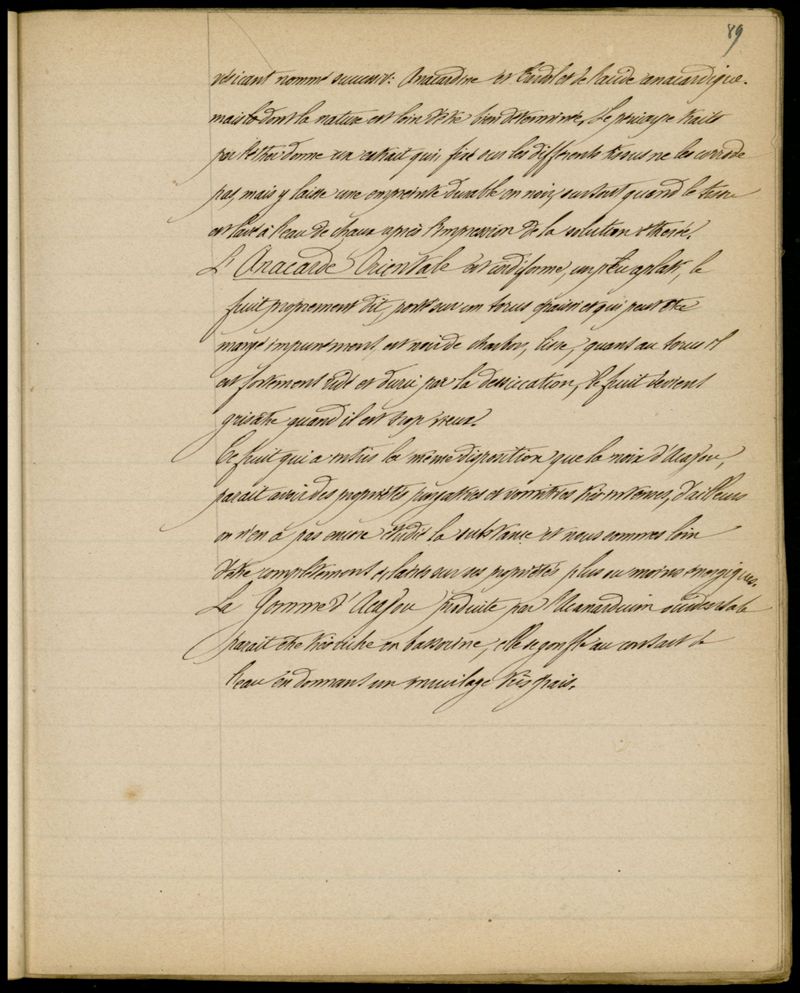 89
vésicant nommé suivant: Anacardine et Cardol et de l'acide anacardique.
mais dont la nature est loin d'être bien déterminée, Le péricarpe traité
par l'éther donne un extrait qui, fixé sur les différents tissus ne les corrode
pas, mais y laisse une empreinte durable en noir, surtout quand le tissu
est lavé à l'eau de chaux après l'impression de la solution éthérée.
L'Anacarde Orientale est cordiforme, un peu aplati, le
fruit proprement dit, porté sur un torus épaissi et qui peut être
mangé impunément, est noir de charbon, lisse, quant au torus il
est fortement ridé et durci par la dessiccation, le fruit devient
grisâtre quand il est trop vieux.
Ce fruit qui a la même disposition que la noix d'Acajou,
parait avoir des propriétés purgatives et vomitives très intenses, d'ailleurs
on n'en a pas encore étudié la substance et nous sommes loin
d'être complètement éclairés sur ses propriétés plus ou moins énergiques.
La Gomme d'Acajou produite par l'Anacardium occidentale
parait être très riche en bassorine, elle se gonfle au contact de
l'eau en donnant un mucilage très épais.